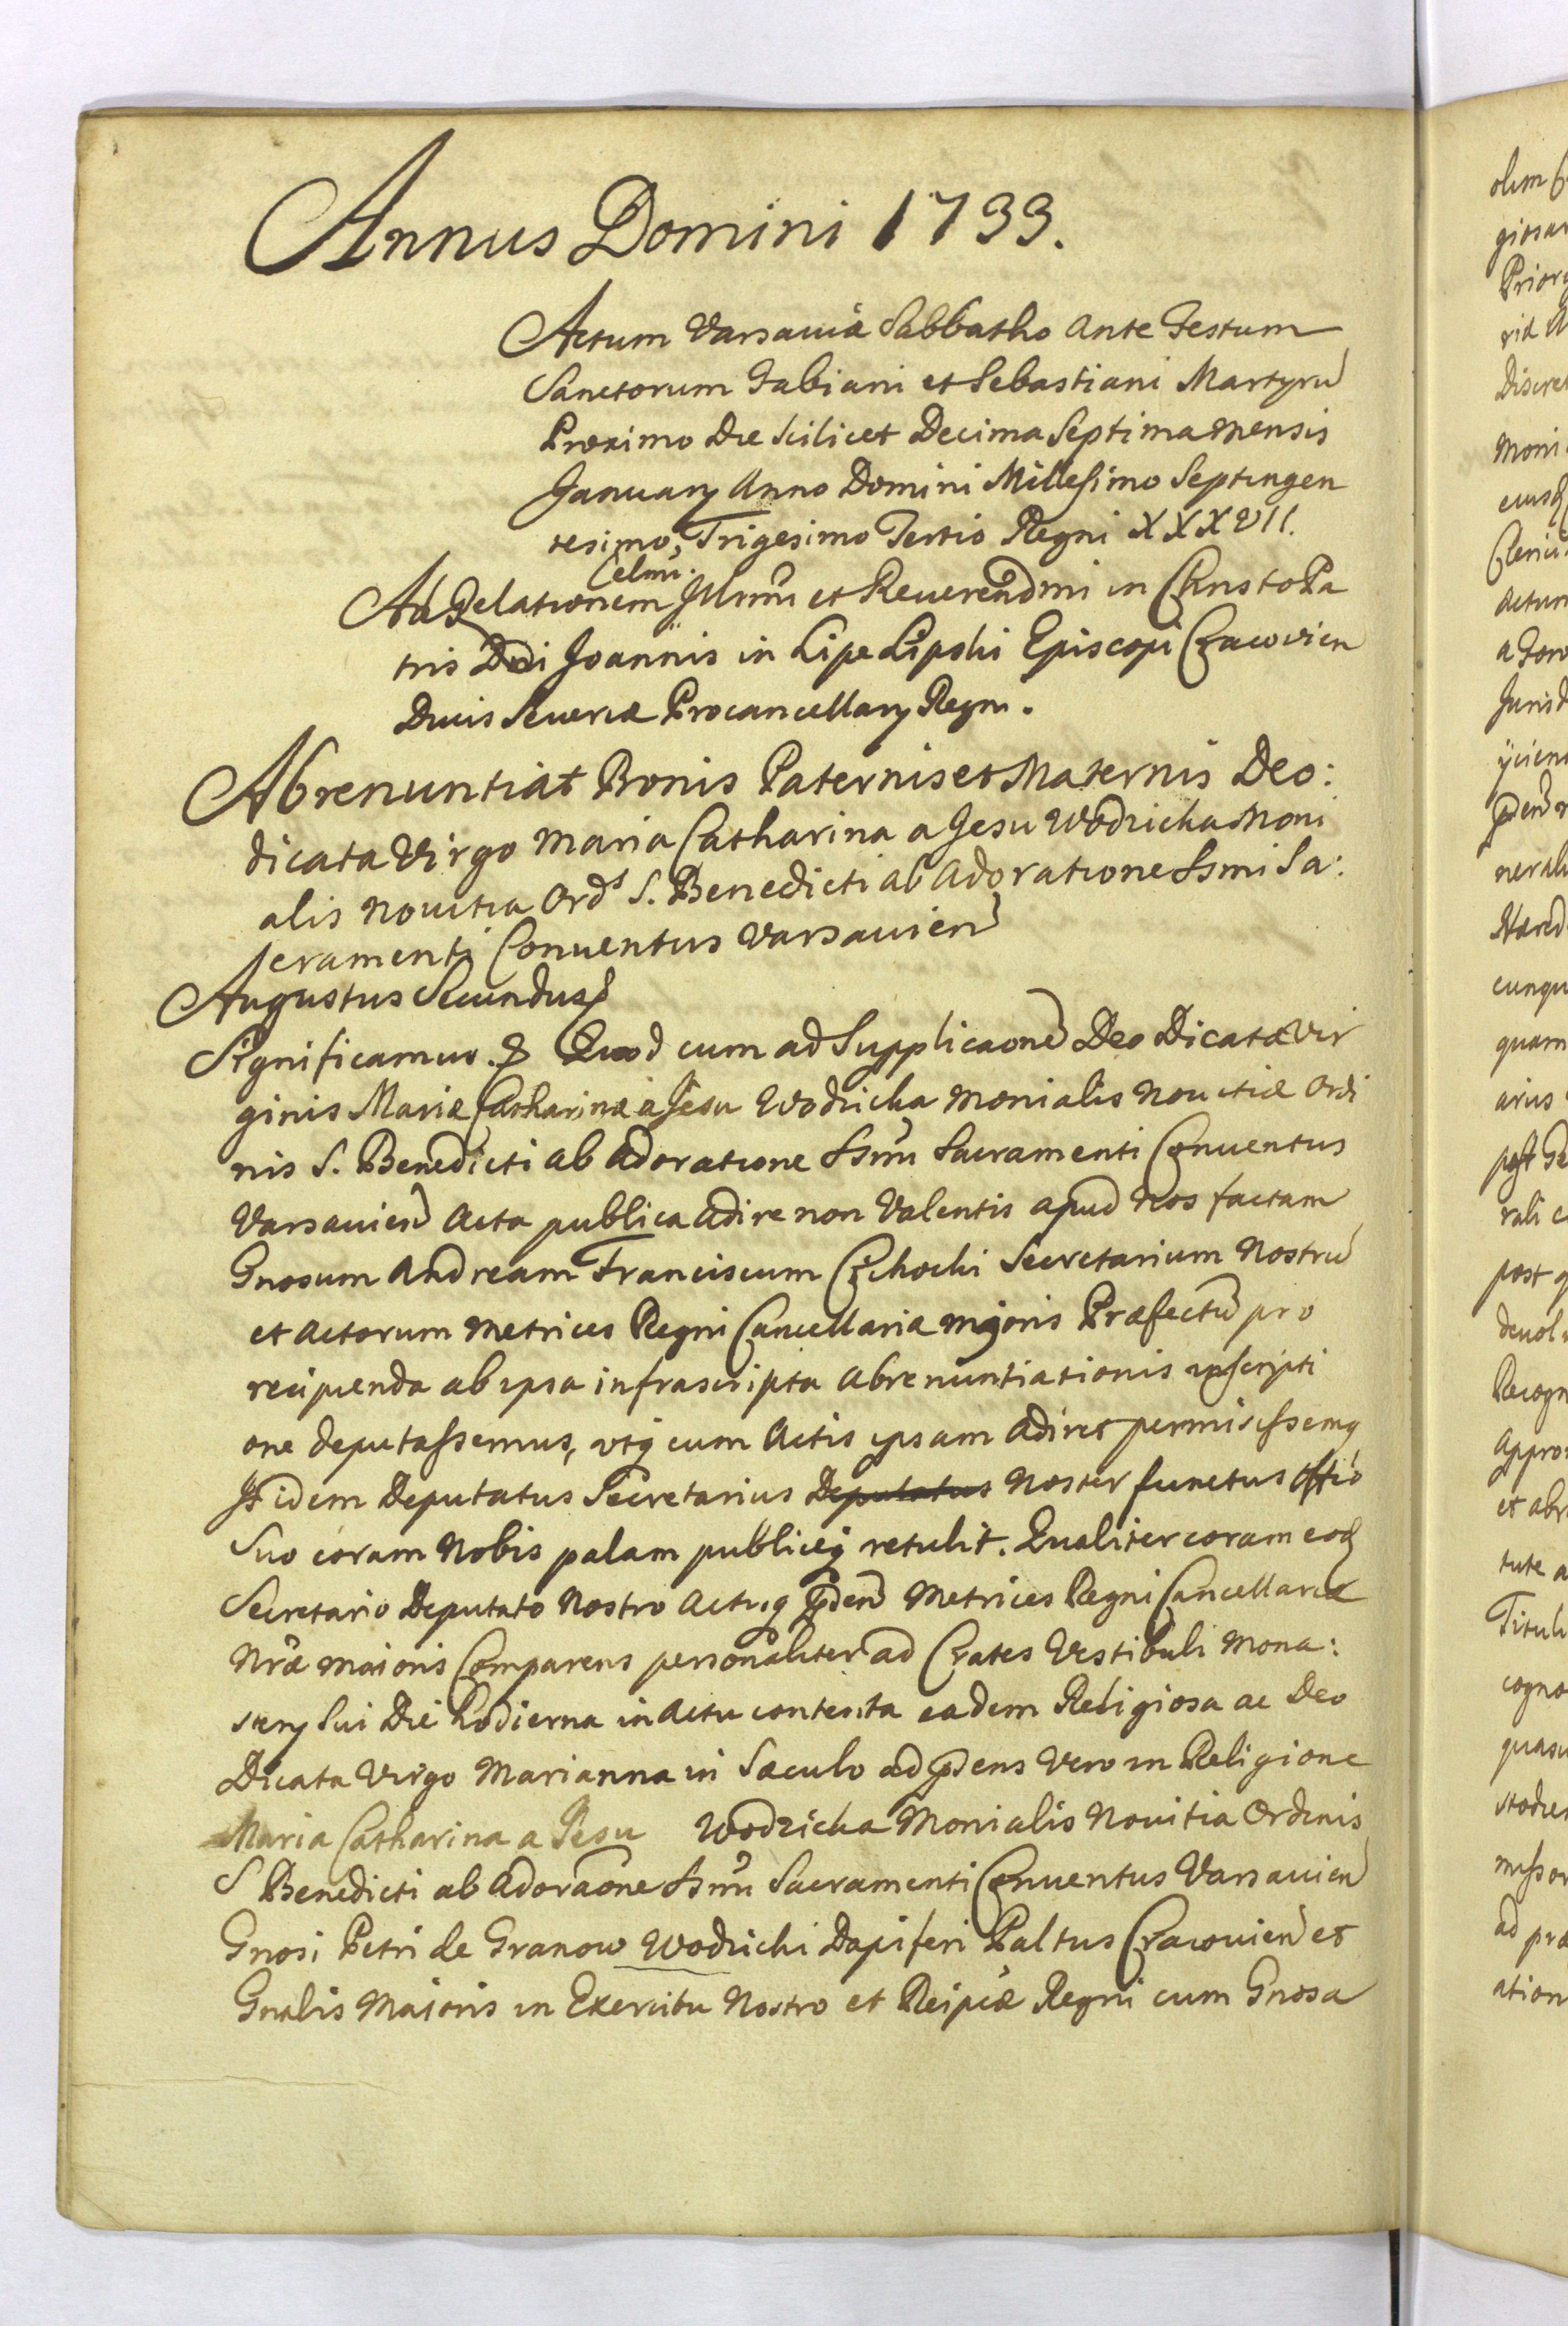 Annus Domini 1733.
Actum Varsaviæ Sabbatho Ante Festum
Sanctorum Fabiani et Sebastiani Martyrũ
Proximo Die Scilicet Decima Septima mensis
Januarij Anno Domini Millesimo Septingen
tesimo, Trigesimo Tertio Regni XXXVII.
Celmi.
Ad Relationem Illmi et Reverendmi in Christo Pa
tris Dni Joannis in Lipe Lipski Episcopi Cracovien
Ducis Severiæ Procancellarij Regni.
Abrenuntiat Bonis Paternis et Maternis Deo:
dicata Virgo Maria Catharina a Jesu Wodzicka Moni
alis novitia Ords S. Benedicti ab Adoratione Ssmi Sa:
cramenti Conventus Varsavien
Augustus Secundus &
Significamus. & Quod cum ad Supplicaone Deo Dicatæ Vir
ginis Mariæ Catharinæ a Jesu Wodzicka monialis novitiæ Ordi
nis S. Benedicti ab Adoratione Ssmi Sacramenti Conventus
Varsavien Acta publica adire non Valentis apud Nos factam
Gnosum Andream Franciscum Cichocki Secretarium Nostrũ
et Actorum Metrices Regni Cancellariæ majoris Præfectũ pro
recipienda ab ipsa infrascripta Abrenuntiationis inscripti
one deputassemus, utq cum Actis ipsam adiret permisissemq
Is idem Deputatus Secretarius Deputatus noster functus Offiо
Suo coram Nobis palam publiceq retulit. Qualiter coram eod
Secretario Deputato Nostro Actisq pden Metrices Regni Cancellariæ
Nræ maioris Comparens personaliter ad Crates Vestibuli Mona:
sterij Sui Die hodierna in Actu contenta eadem Religiosa ac Deo
Dicata Virgo Marianna in Sæculo ad pdens Vero in Religione
Maria Catharina a Jesu Wodzicka Monialis Novitia Ordinis
S Benedicti ab Adoraone Ssmi Sacramenti Conventus Varsavien
Gnosi Petri de Granow Wodzicki Dapiferi Paltus Cracovien et
Gnalis Maioris in Exercitu Nostro et Reipcæ Regni cum Gnosa